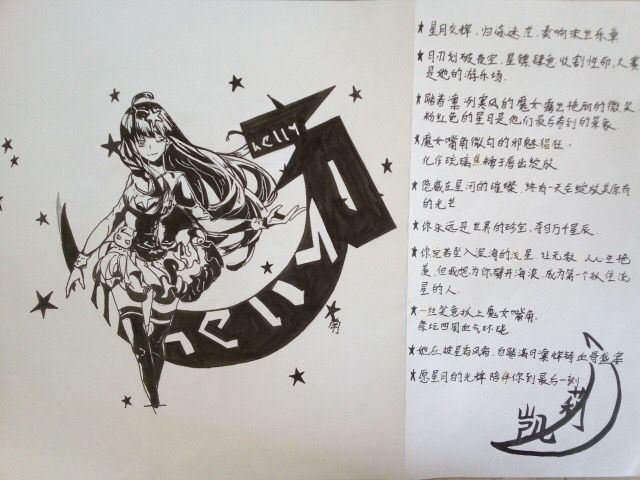 helly
kelly
角
★星月交辉，归途迷茫，奏响末世乐章
★月刃划破夜空，星镖肆意收割性命，大赛
是她的游乐场.
★踏着凛冽寒风的魔女露出艳丽的微笑
粉红色的星月是他们最后看到的景象.
★魔女嘴角微勾的邪魅猖狂，
化作琉璃
糖于唇齿绽放
★隐藏在星河的璀璨，终有一天会绽放其原有
的光芒
★你永远是世界的珍宝，夺目万千星辰
★你宛若坠入深海的流星，让无数人心生艳
羡，但我想为你劈开海浪，成为第一个抓住流
星的人.
★一丝笑意扒上魔女嘴角.
祭坛四周血气环绕
★她应披星有风有，自踏满月
★愿星月的光辉陪伴你到最后一刻
凯莉